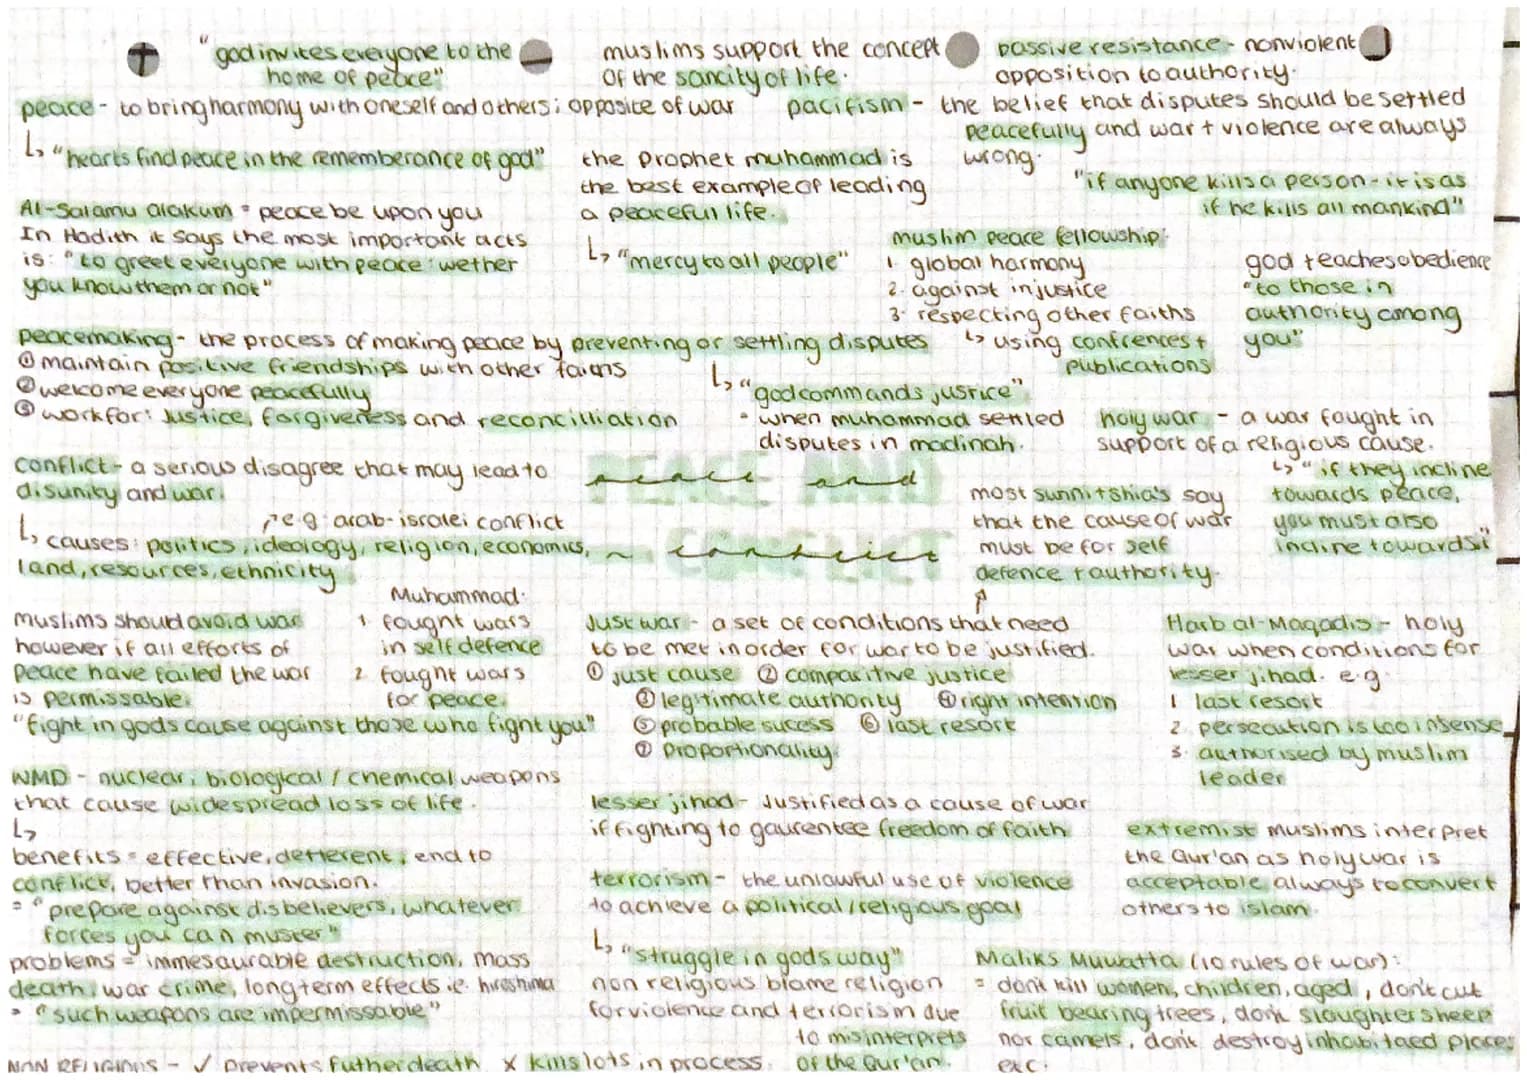 "god invites everyone to the
home of peace"
muslims support the concept
of the sancity of life.
passive resistance - nonviolent
opposition to authority.
peace - to bring harmony with oneself and others; opposite of war
↳ "hearts find peace in the rememberance of god"
pacifism - the belief that disputes should be settled
peacefully and war + violence are always
wrong.
the prophet muhammad is
the best example of leading
a peaceful life.
↳ "mercy to all people"
"if anyone kills a person - it is as
if he kills all mankind"
Al-Salamu alakum = peace be upon you
In Hadith it says the most important acts
is: "to greet everyone with peace: wether
you know them or not"
muslim peace fellowship:
1. global harmony
2. against injustice
3. respecting other faiths
↳ using confrences +
publications
god teaches obedience
"to those in
authority among
you"
peacemaking - the process of making peace by preventing or settling disputes
① maintain positive friendships with other faiths
② welcome everyone peacefully
③ work for: justice, forgiveness and reconcilliation
↳ "god commands justice"
- when muhammad settled
disputes in madinah.
holy war - a war fought in
support of a religious cause.
↳ "if they incline
towards peace,
you must also
incline towards it"
conflict - a serious disagree that may lead to
disunity and war.
↗ e.g. arab-isralei conflict
↳ causes: politics, ideology, religion, economics,
land, resources, ethnicity
PEACE AND
peace and
CONFLICT
conflict
most sunni + shia's say
that the cause of war
must be for self
defence + authority.
muslims should avoid war
however if all efforts of
peace have failed the war
is permissable.
"fight in gods cause against those who fight you"
Muhammad:
1 fought wars
in self defence
2 fought wars
for peace.
Just war - a set of conditions that need
to be met in order for war to be justified.
① just cause ② comparitive justice
③ legitimate authority ④ right intention
⑤ probable sucess ⑥ last resort
⑦ proportionality.
Harb al-Maqadis - holy
war when conditions for
lesser jihad. e.g.
1 last resort
2. persecution is too insense
3. authorised by muslim
leader
WMD - nuclear, biological / chemical weapons
that cause widespread loss of life.
↳
benefits = effective, deterrent, end to
conflict, better than invasion.
= "prepare against disbelievers, whatever
forces you can muster"
problems = immesaurable destruction, mass
death, war crime, long term effects i.e. hiroshima
= "such weapons are impermissable"
NON RELIGIOUS - ✓ prevents futher death x kills lots in process.
lesser jihad - Justified as a cause of war
if fighting to gaurentee freedom of faith
terrorism - the unlawful use of violence
to achieve a political / religious goal
↳ "struggle in gods way"
non religious blame religion
for violence and terrorism due
to misinterprets
of the Qur'an.
extremist muslims interpret
the Qur'an as holy war is
acceptable always to convert
others to islam.
Maliks Muwatta (10 rules of war):
= don't kill women, children, aged, don't cut
fruit bearing trees, dont slaughter sheep
nor camels, don't destroy inhabitaed places
exc.